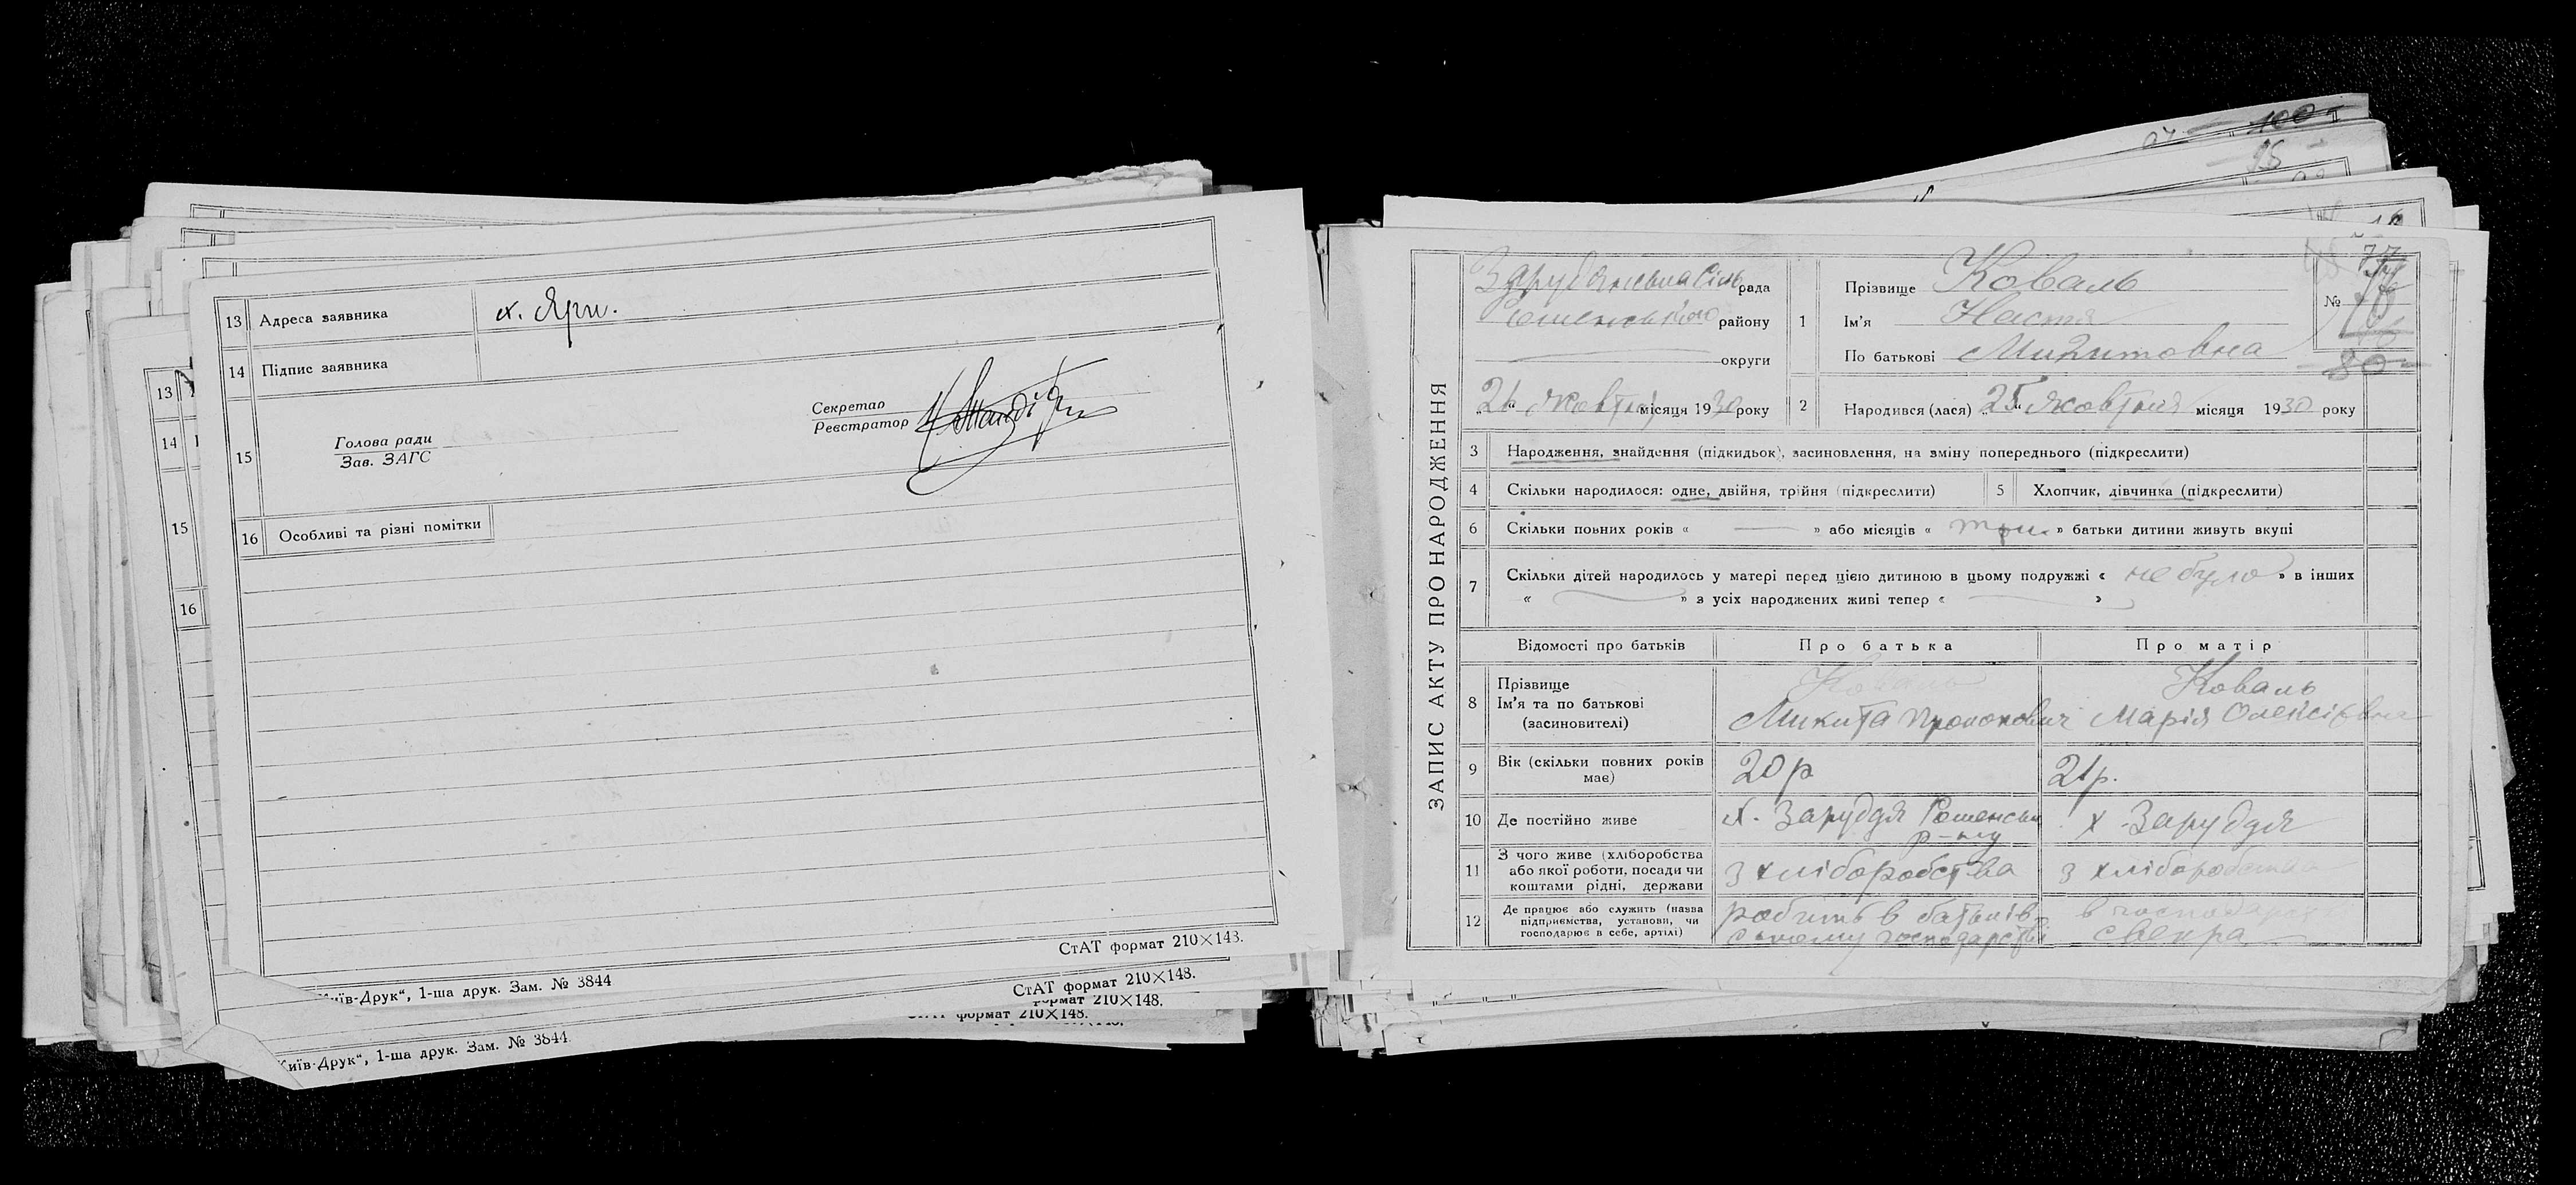 13 Адреса заявника х. Яри.
14 Підпис заявника
15
Секретар
Реєстратор
Голова ради
Зав. ЗАГС
16 Особливі та різні помітки
СтАТ формат 210×148.
13
14
15
16
Київ-Друк“, 1-ша друк. Зам. № 3844
СтАТ формат 210×148.
формат 210×148.
формат 210×148.
Київ-Друк“, 1-ша друк. Зам. № 3844
100
95
ЗАПИС АКТУ ПРО НАРОДЖЕННЯ
рада
району
округи
„26“ жовтня місяця 1930 року
1 Прізвище Коваль
Ім'я Настя
По батькові Микитовна
№
77
80
2 Народився (лася) „25“ жовтня місяця 1930 року
3 Народження, знайдення (підкидьок), засиновлення, на зміну попереднього (підкреслити)
4 Скільки народилося: одне, двійня, трійня (підкреслити) 5 Хлопчик, дівчинка (підкреслити)
6 Скільки повних років « — » або місяців « три » батьки дитини живуть вкупі
7 Скільки дітей народилось у матері перед цією дитиною в цьому подружжі « не було » в інших
« — » з усіх народжених живі тепер « — »
Відомості про батьків Про батька Про матір
8 Прізвище Коваль Коваль
Ім'я та по батькові Микита Прокопович Марія Олексіївна
(засиновителі)
9 Вік (скільки повних років має) 20 р 21 р.
10 Де постійно живе х. Заруддя Роменськ р-ну х. Заруддя
11 З чого живе (хліборобства або якої роботи, посади чи коштами рідні, держави з хліборобства з хліборобства
12 Де працює або служить (назва підприємства, установи, чи господарює в себе, артілі) робить в батьківському господарстві в господ свекра